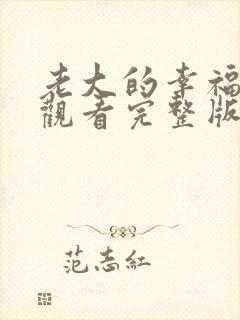 老大的幸福
觀看完整版
范志紅